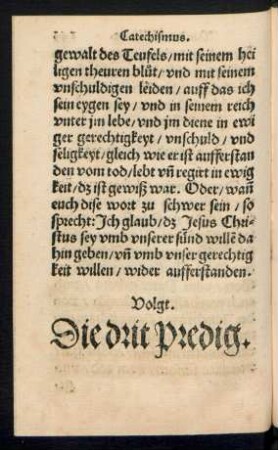 Catechismus.
gewalt des Teufels/mit seinem hei
ligen theuren blůt/vnd mit seinem
vnschuldigen leiden/auff das ich
sein eygen sey/vnd in seinem reich
vnter jm lebe/vnd jm diene in ewi
ger gerechtigkeyt/vnschuld/vnd
seligkeyt/gleich wie er ist aufferstan
den vom tod/lebt vñ regirt in ewig
keit/dz ist gewiß war. Oder/wañ
euch dise wort zu schwer sein/so
sprecht: Ich glaub/dz Jesus Chri-
stus sey vmb vnserer sünd willē da
hin geben/vñ vmb vnser gerechtig
keit willen/wider aufferstanden.
Volgt.
Die drit Predig.